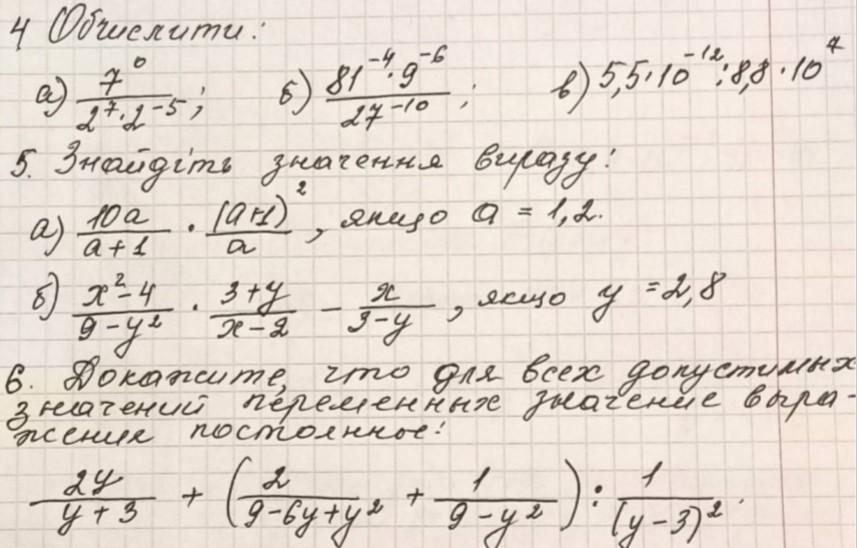 4 Обчислити:
а) 7⁰/(2⁷·2⁻⁵); б) (81⁻⁴·9⁻⁶)/27⁻¹⁰; в) 5,5·10⁻¹²:8,8·10⁷
5. Знайдіть значення виразу:
а) 10a/(a+1) · (a+1)²/a, якщо a = 1,2.
б) (x²-4)/(9-y²) · (3+y)/(x-2) - x/(3-y), якщо y = 2,8
6. Докажите, что для всех допустимых
значений переменных значение выра-
жения постоянное:
2y/(y+3) + (2/(9-6y+y²) + 1/(9-y²)) : 1/(y-3)².